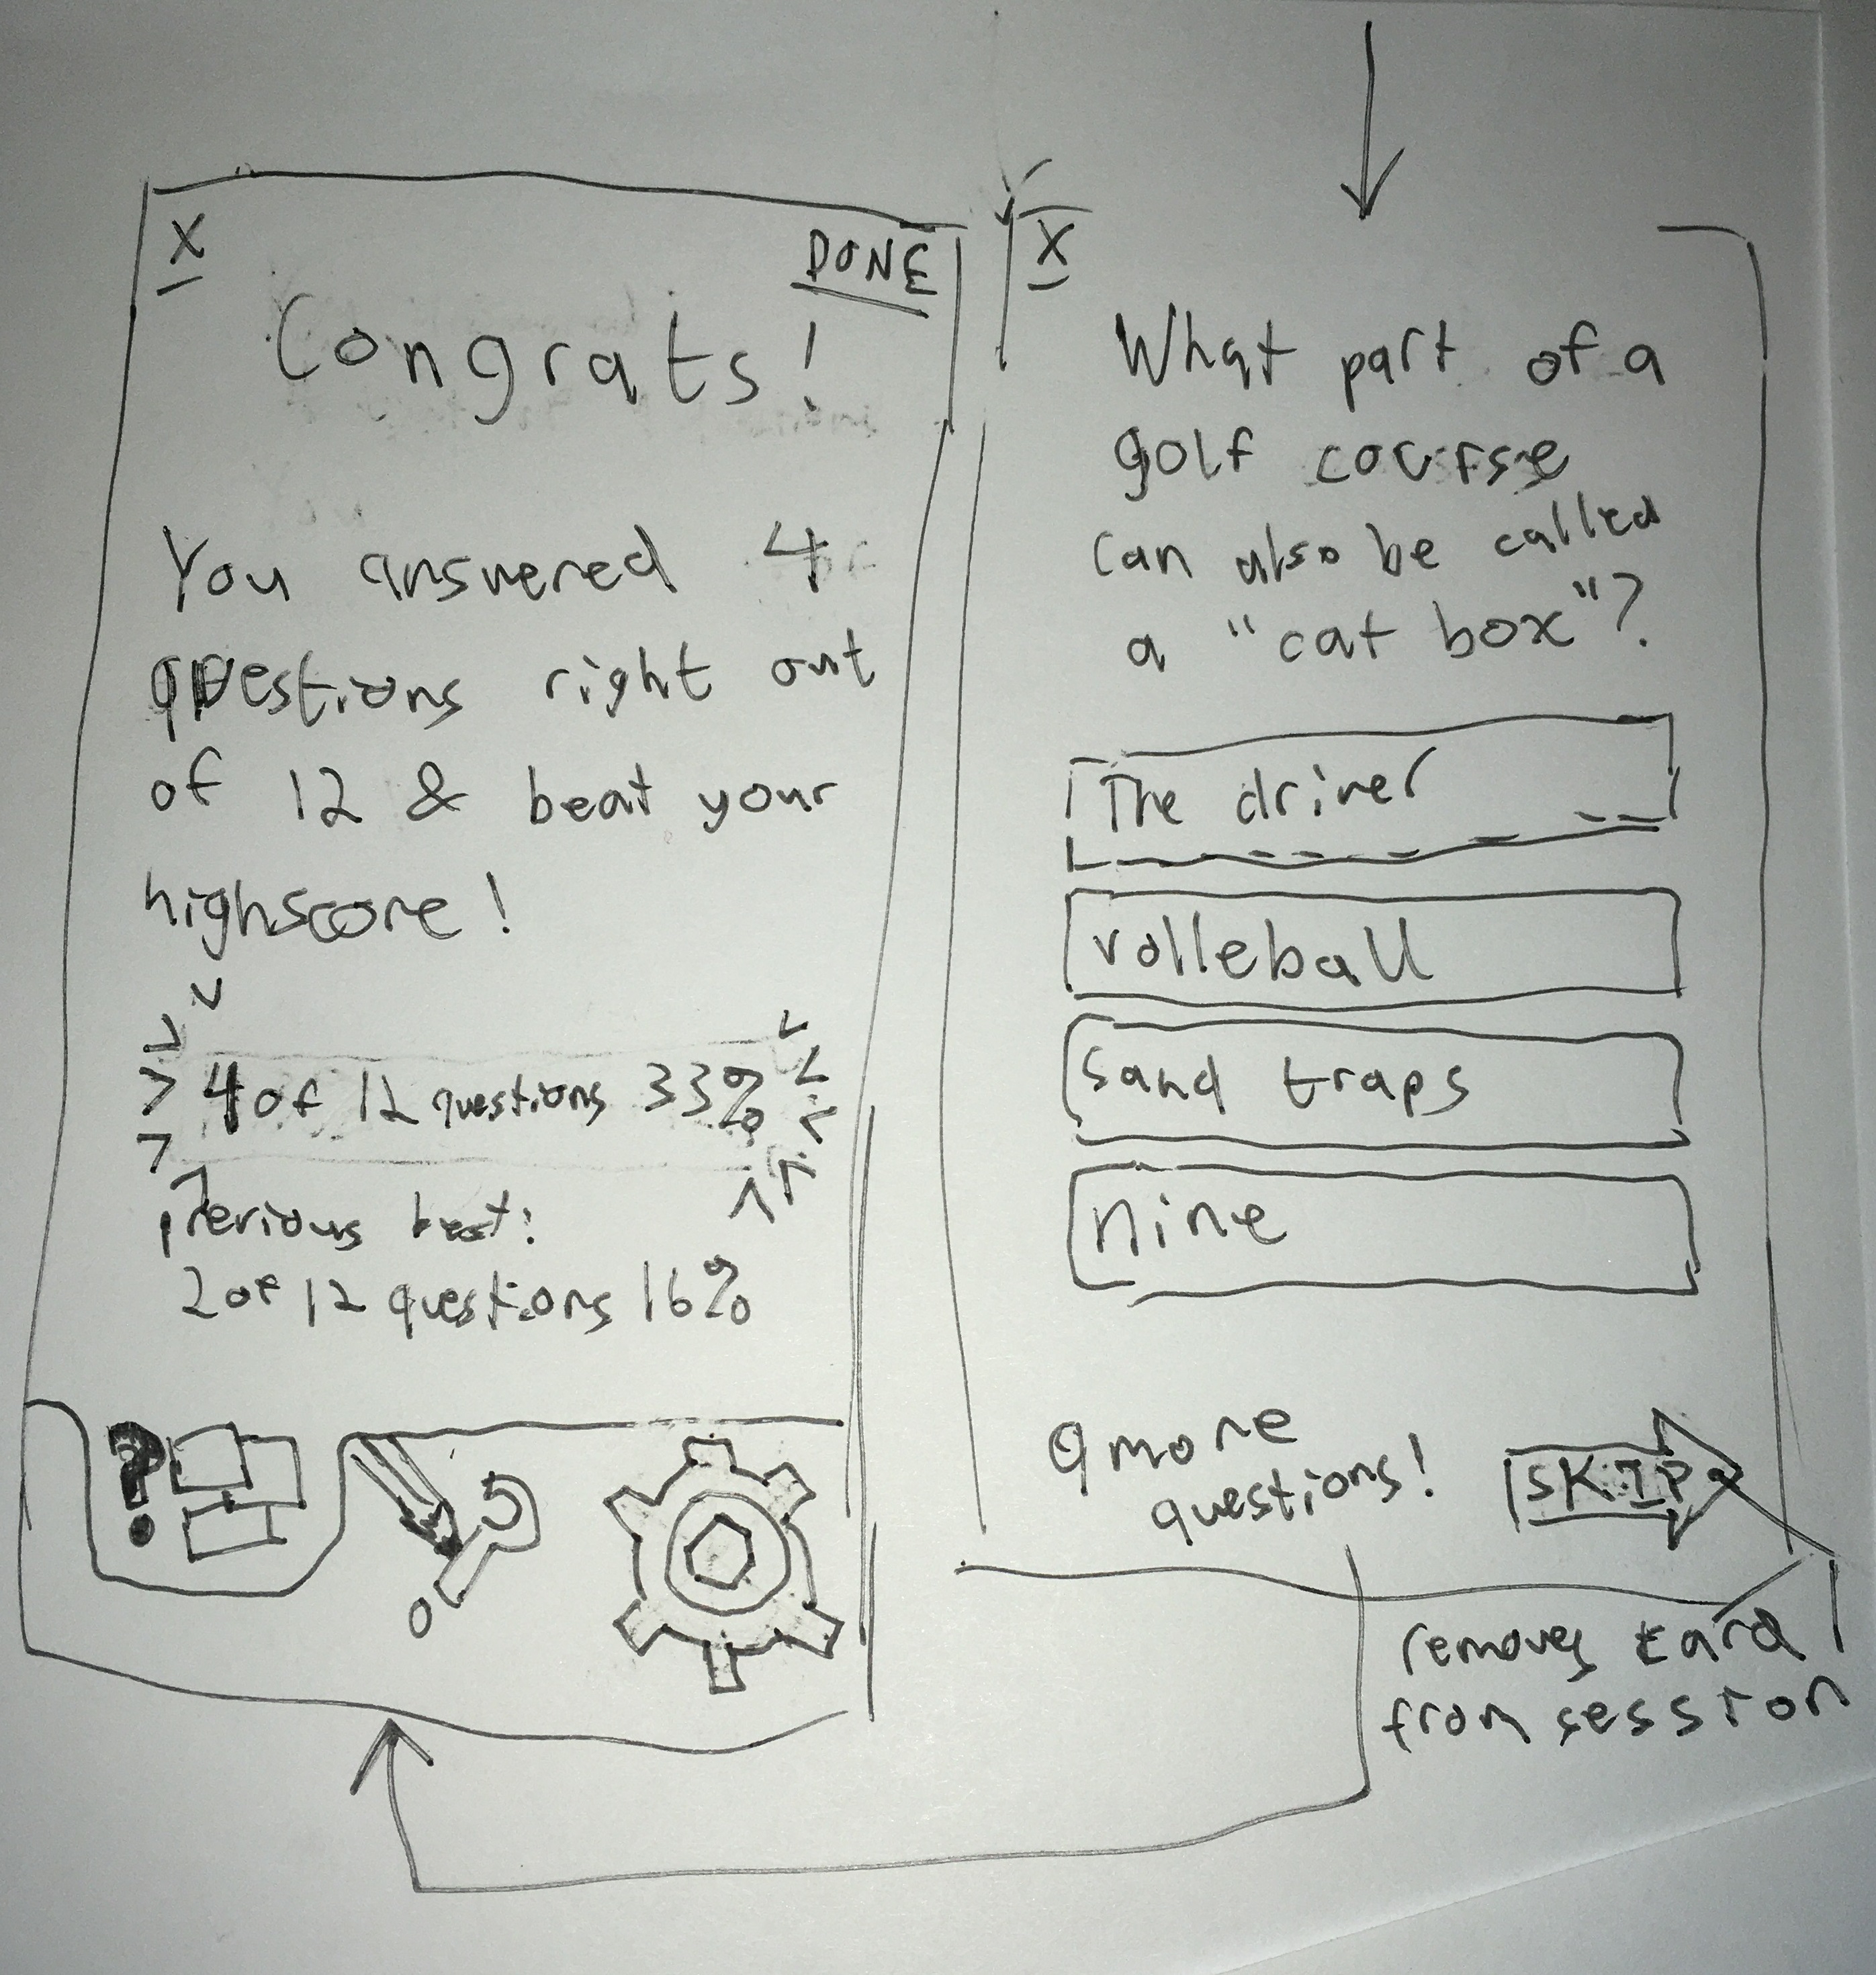 X
DONE
Congrats!
You answered 4
questions right out
of 12 & beat your
highscore!
4 of 12 questions 33%
previous best:
2 of 12 questions 16%
?
X
What part of a
golf course
can also be called
a "cat box"?
The driver
volleball
sand traps
nine
9 more
questions!
SKIP
removes card
from session